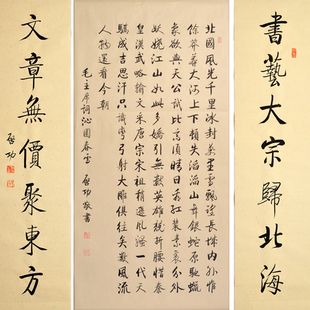 書藝大宗歸北海
北國風光千里冰封萬里雪飄望長城內外惟
餘莽莽大河上下頓失滔滔山舞銀蛇原馳蠟
象欲與天公試比高須晴日看紅裝素裹分外
妖嬈江山如此多嬌引無數英雄競折腰惜秦
皇漢武略輸文采唐宗宋祖稍遜風騷一代天
驕成吉思汗只識彎弓射大雕俱往矣數風流
人物還看今朝
毛主席詞沁園春雪 啟功敬書
文章無價聚東方
啟功